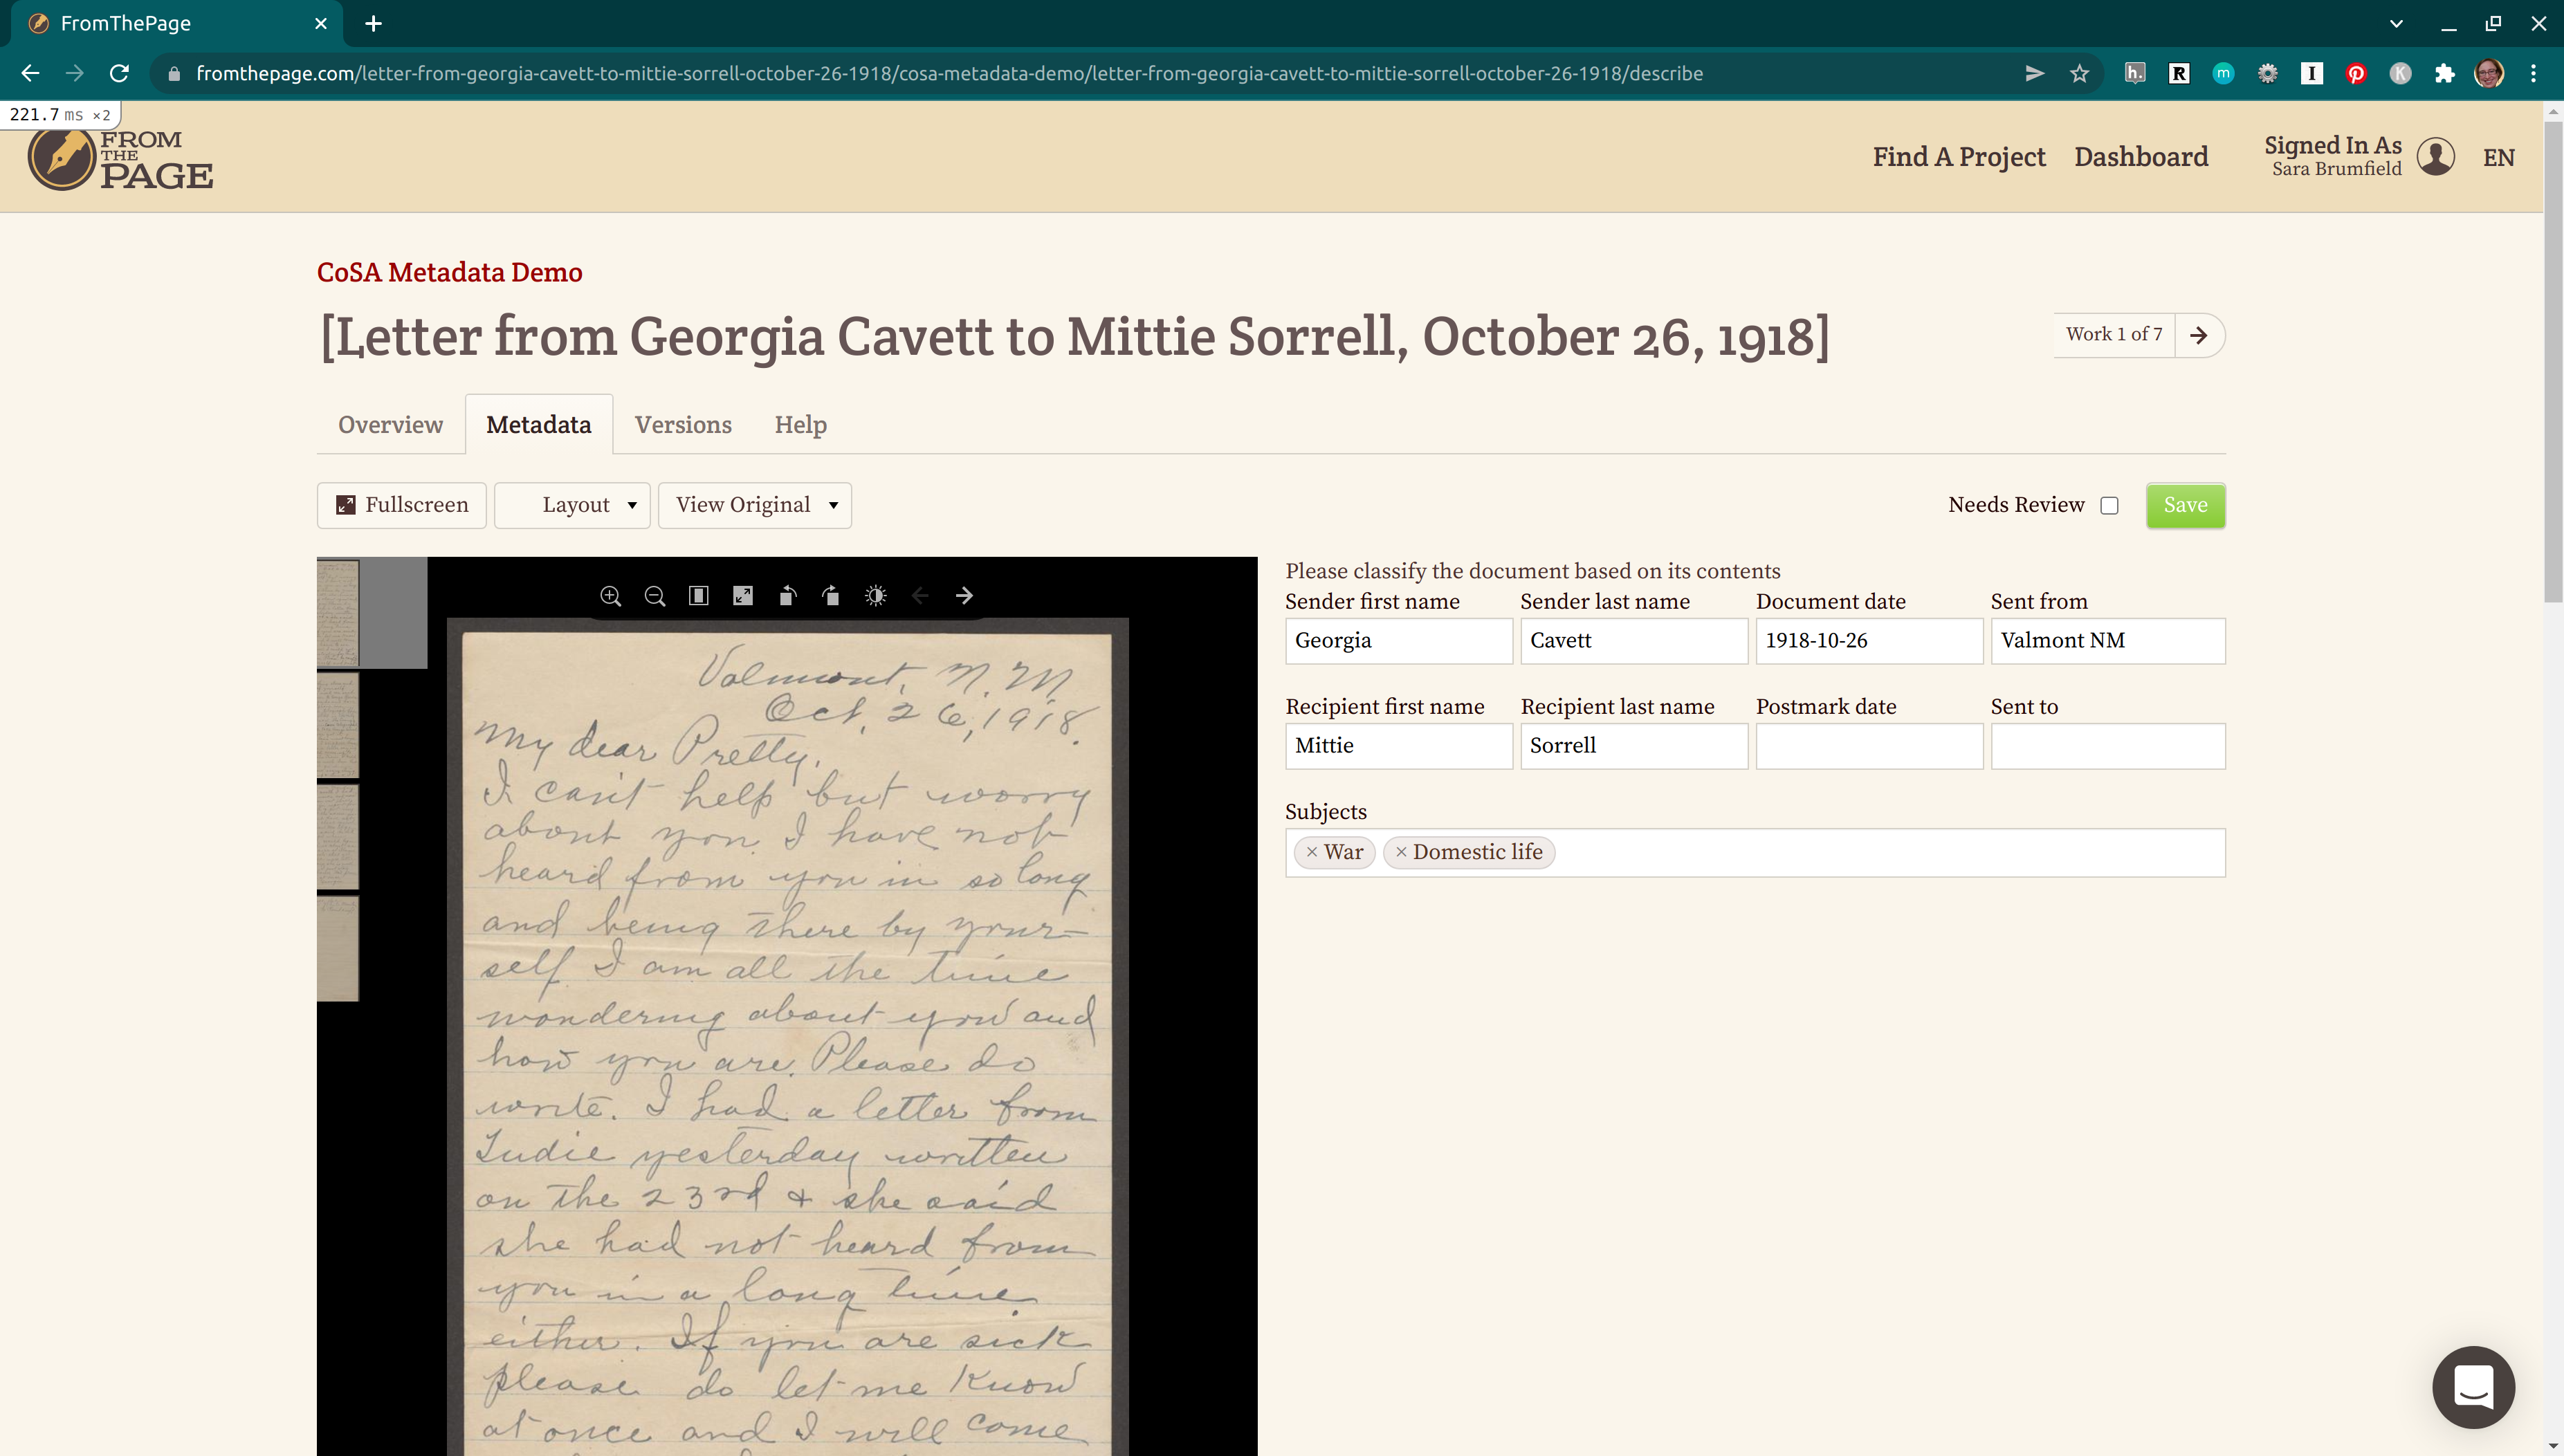 FromThePage
fromthepage.com/letter-from-georgia-cavett-to-mittie-sorrell-october-26-1918/cosa-metadata-demo/letter-from-georgia-cavett-to-mittie-sorrell-october-26-1918/describe
221.7 ms ×2
FROM
THE
PAGE
Find A Project
Dashboard
Signed In As
Sara Brumfield
EN
CoSA Metadata Demo
[Letter from Georgia Cavett to Mittie Sorrell, October 26, 1918]
Work 1 of 7
Overview
Metadata
Versions
Help
Fullscreen
Layout
View Original
Needs Review
Save
Valmont, N. M
Oct. 26, 1918.
My dear Pretty.
I can't help but worry
about you. I have not
heard from you in so long
and being there by your-
self I am all the time
wondering about you and
how you are. Please do
write. I had a letter from
Ludie yesterday written
on the 23rd & she said
she had not heard from
you in a long time
either. If you are sick
please do let me know
at once and I will come
Please classify the document based on its contents
Sender first name
Sender last name
Document date
Sent from
Georgia
Cavett
1918-10-26
Valmont NM
Recipient first name
Recipient last name
Postmark date
Sent to
Mittie
Sorrell
Subjects
× War
× Domestic life